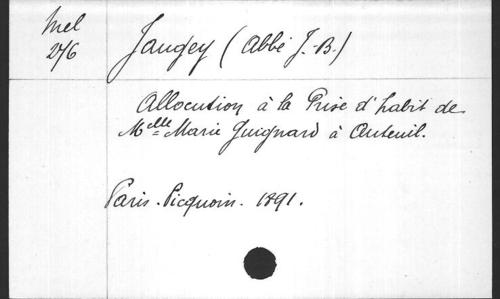 Mel
276
Jaugey (Abbé J. B.)
Allocution à la Prise d'habit de
Melle Marie Guignard à Auteuil.
Paris. Picquoin. 1891.